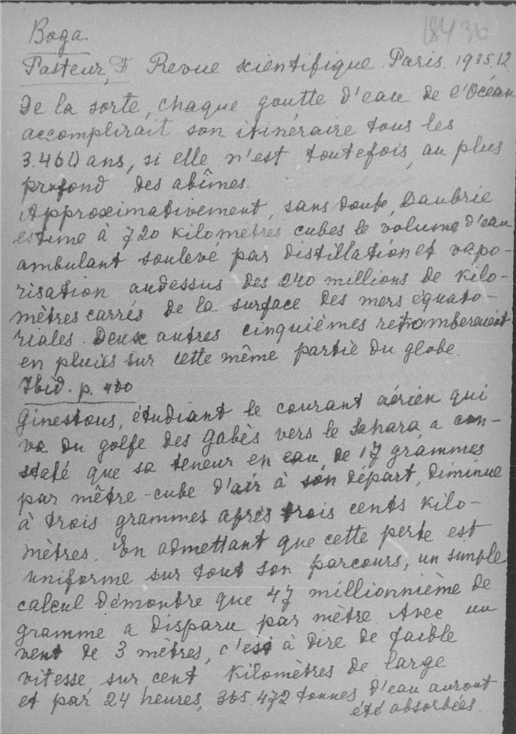 18436
Boga
Pasteur, F Revue scientifique Paris 1935.12
De la sorte, chaque goutte d'eau de l'Océan
accomplirait son itinéraire tous les
3.460 ans, si elle n'est toutefois, au plus
profond des abîmes.
Approximativement, sans doute, Daubrie
estime à 720 kilomètres cubes le volume d'eau
ambulant soulevé par distillation et vapo-
risation audessus des 240 millions de kilo-
mètres carrés de la surface des mers équato-
riales. Deux autres cinquièmes retomberaient
en pluies sur cette même partie du globe.
Ibid. p. 400
Ginestous, étudiant le courant aérien qui
va du golfe des Gabès vers le Sahara, a con-
staté que sa teneur en eau, de 17 grammes
par mêtre-cube d'air à son départ, diminue
à trois grammes après trois cents kilo-
mètres. En admettant que cette perte est
uniforme sur tout son parcours, un simple
calcul démontre que 47 millionnième de
gramme a disparu par mètre. Avec un
vent de 3 mètres, c'est à dire de faible
vitesse sur cent kilomètres de large
et par 24 heures, 365.472 tonnes d'eau auront
été absorbées.